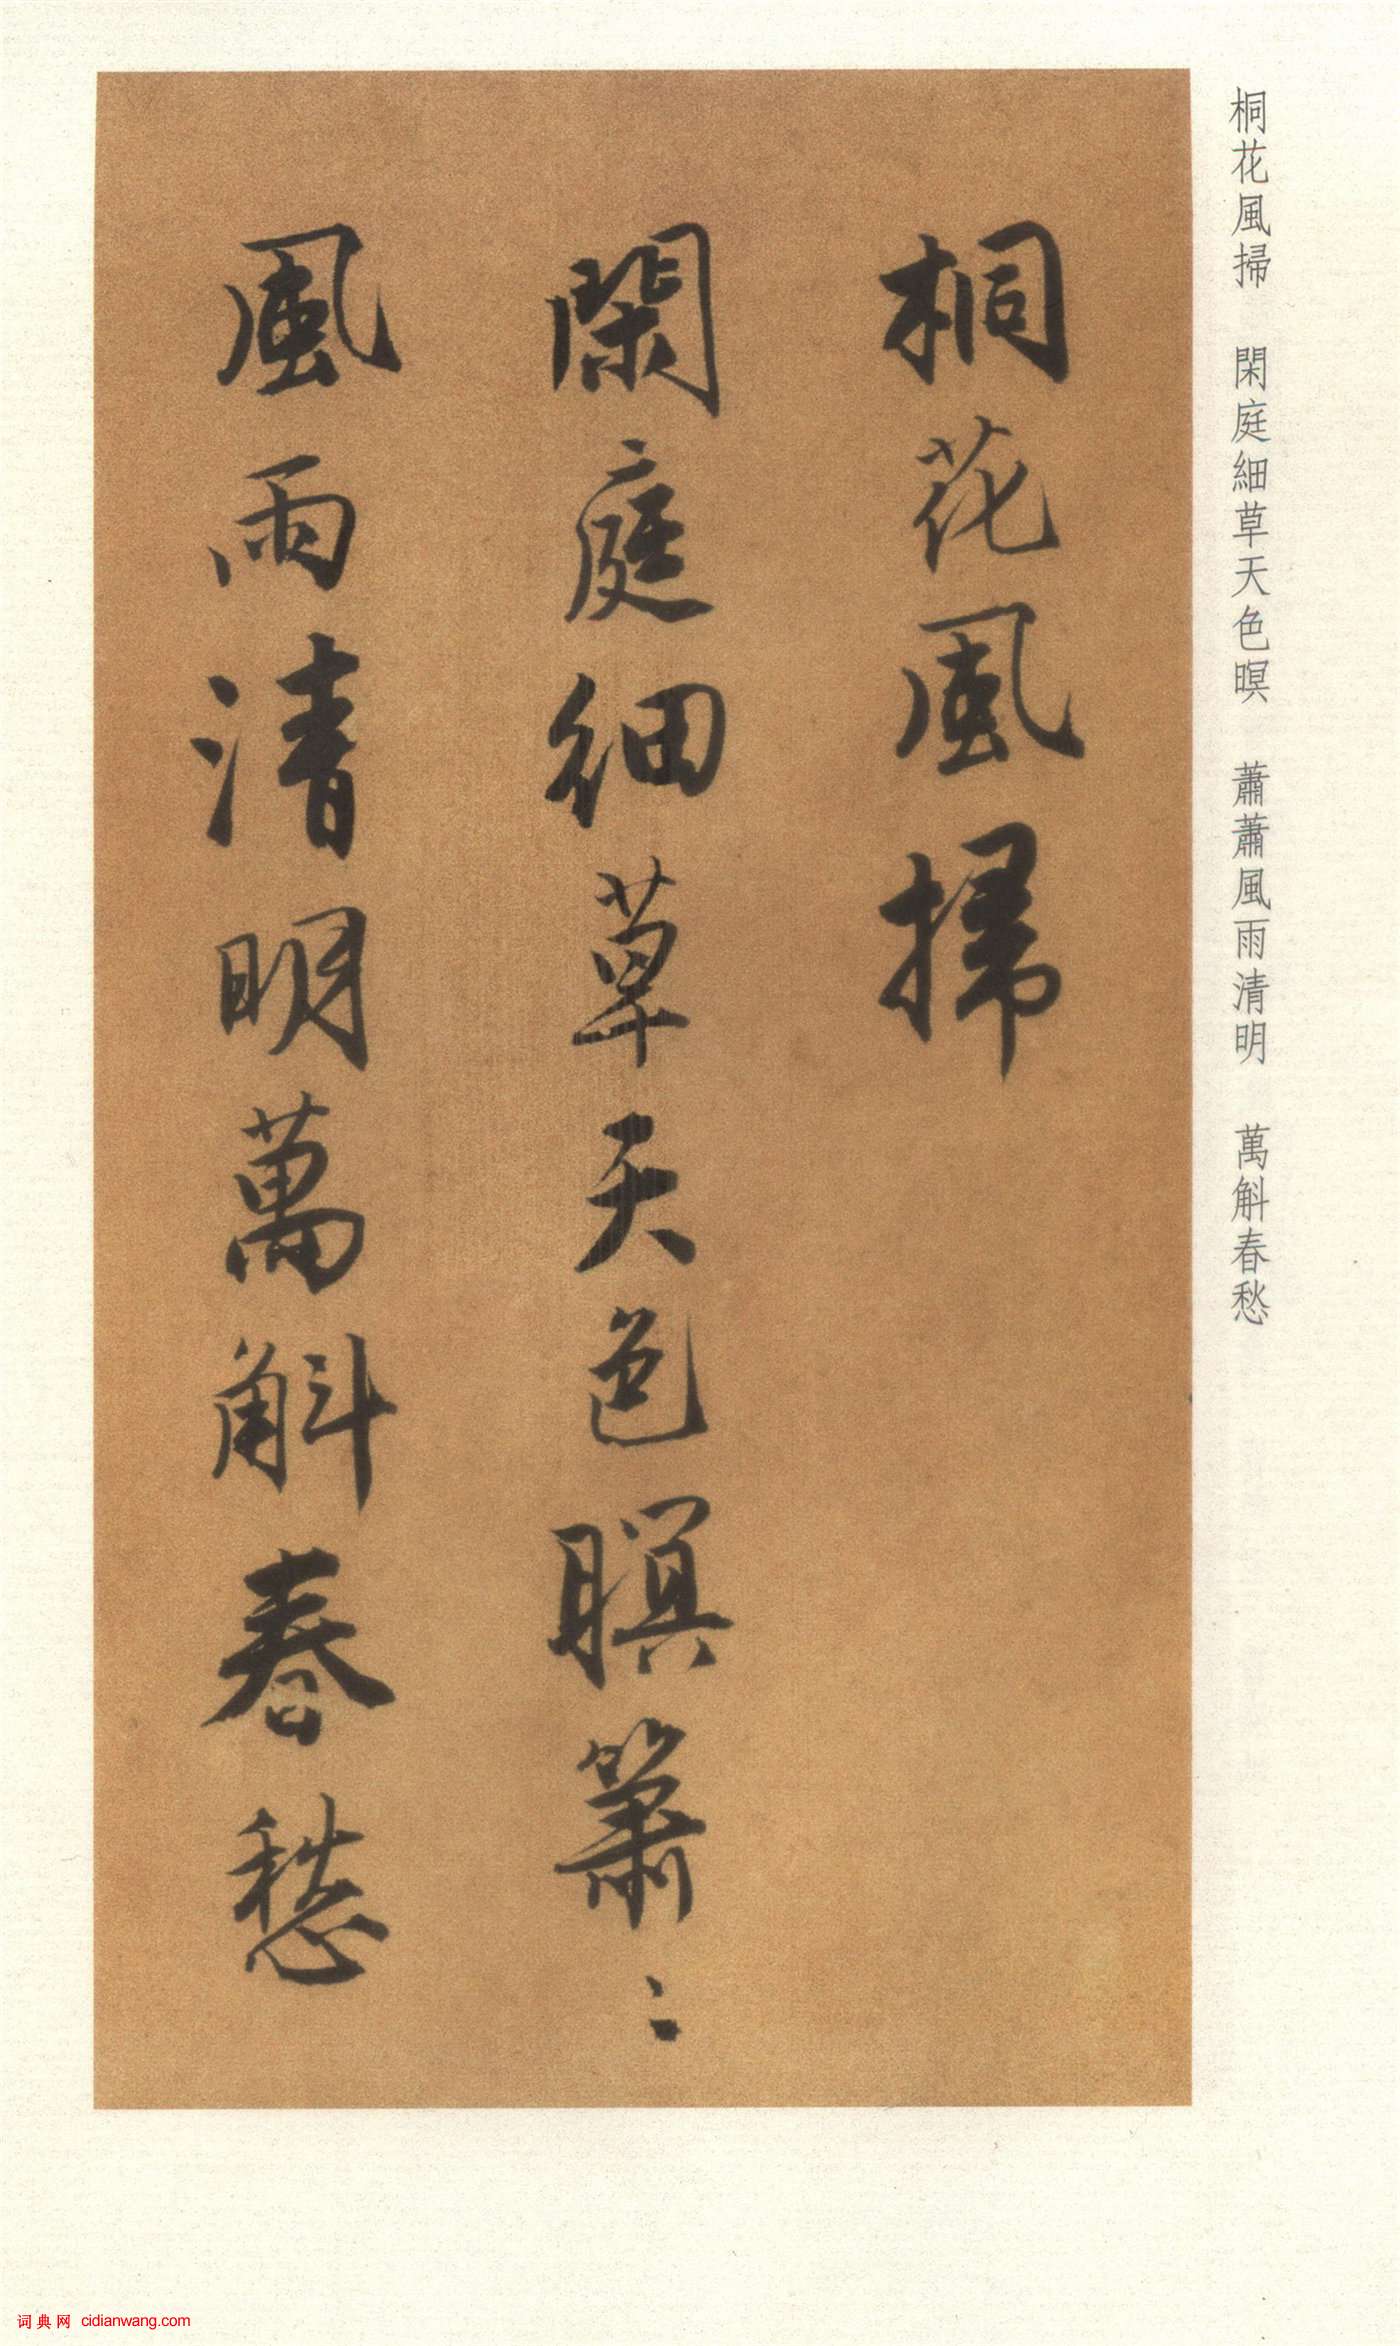 桐花風掃　閑庭細草天色暝　蕭蕭風雨清明　萬斛春愁
桐花風掃
閑庭細草天色暝簫〻
風雨清明萬斛春愁
词典网 cidianwang.com